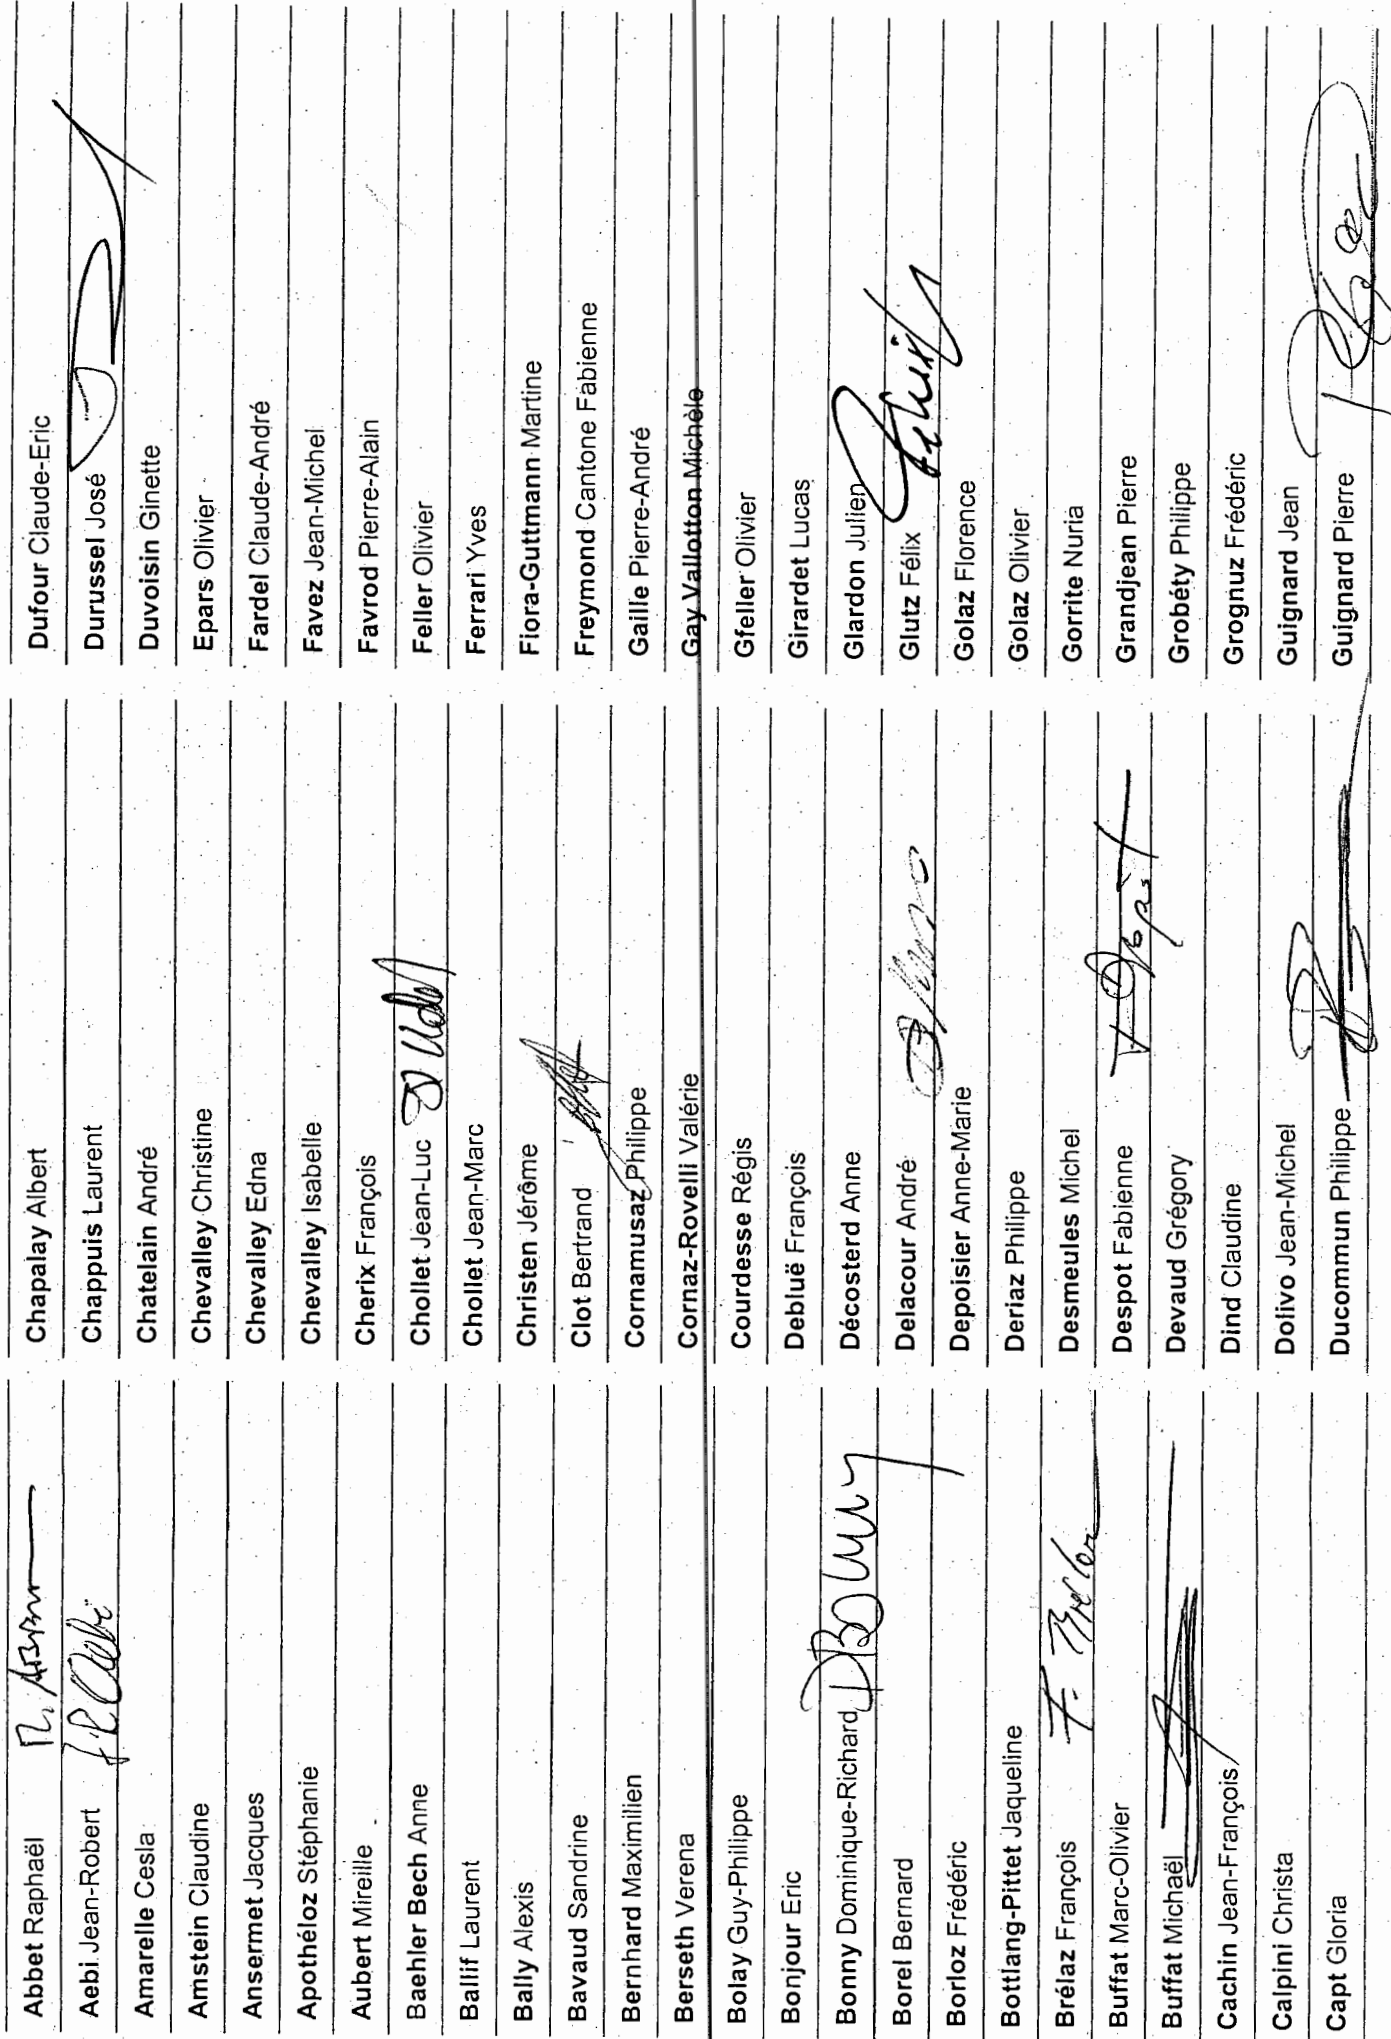 Abbet Raphaël
Aebi Jean-Robert
Amarelle Cesla
Amstein Claudine
Ansermet Jacques
Apothéloz Stéphanie
Aubert Mireille
Baehler Bech Anne
Ballif Laurent
Bally Alexis
Bavaud Sandrine
Bernhard Maximilien
Berseth Verena
Bolay Guy-Philippe
Bonjour Eric
Bonny Dominique-Richard
Borel Bernard
Borloz Frédéric
Bottlang-Pittet Jaqueline
Brélaz François
Buffat Marc-Olivier
Buffat Michaël
Cachin Jean-François
Calpini Christa
Capt Gloria
Chapalay Albert
Chappuis Laurent
Chatelain André
Chevalley Christine
Chevalley Edna
Chevalley Isabelle
Cherix François
Chollet Jean-Luc
Chollet Jean-Marc
Christen Jérôme
Clot Bertrand
Cornamusaz Philippe
Cornaz-Rovelli Valérie
Courdesse Régis
Debluë François
Décosterd Anne
Delacour André
Depoisier Anne-Marie
Deriaz Philippe
Desmeules Michel
Despot Fabienne
Devaud Grégory
Dind Claudine
Dolivo Jean-Michel
Ducommun Philippe
Dufour Claude-Eric
Durussel José
Duvoisin Ginette
Epars Olivier
Fardel Claude-André
Favez Jean-Michel
Favrod Pierre-Alain
Feller Olivier
Ferrari Yves
Fiora-Guttmann Martine
Freymond Cantone Fabienne
Gaille Pierre-André
Gay Vallotton Michèle
Gfeller Olivier
Girardet Lucas
Glardon Julien
Glutz Félix
Golaz Florence
Golaz Olivier
Gorrite Nuria
Grandjean Pierre
Grobéty Philippe
Grognuz Frédéric
Guignard Jean
Guignard Pierre